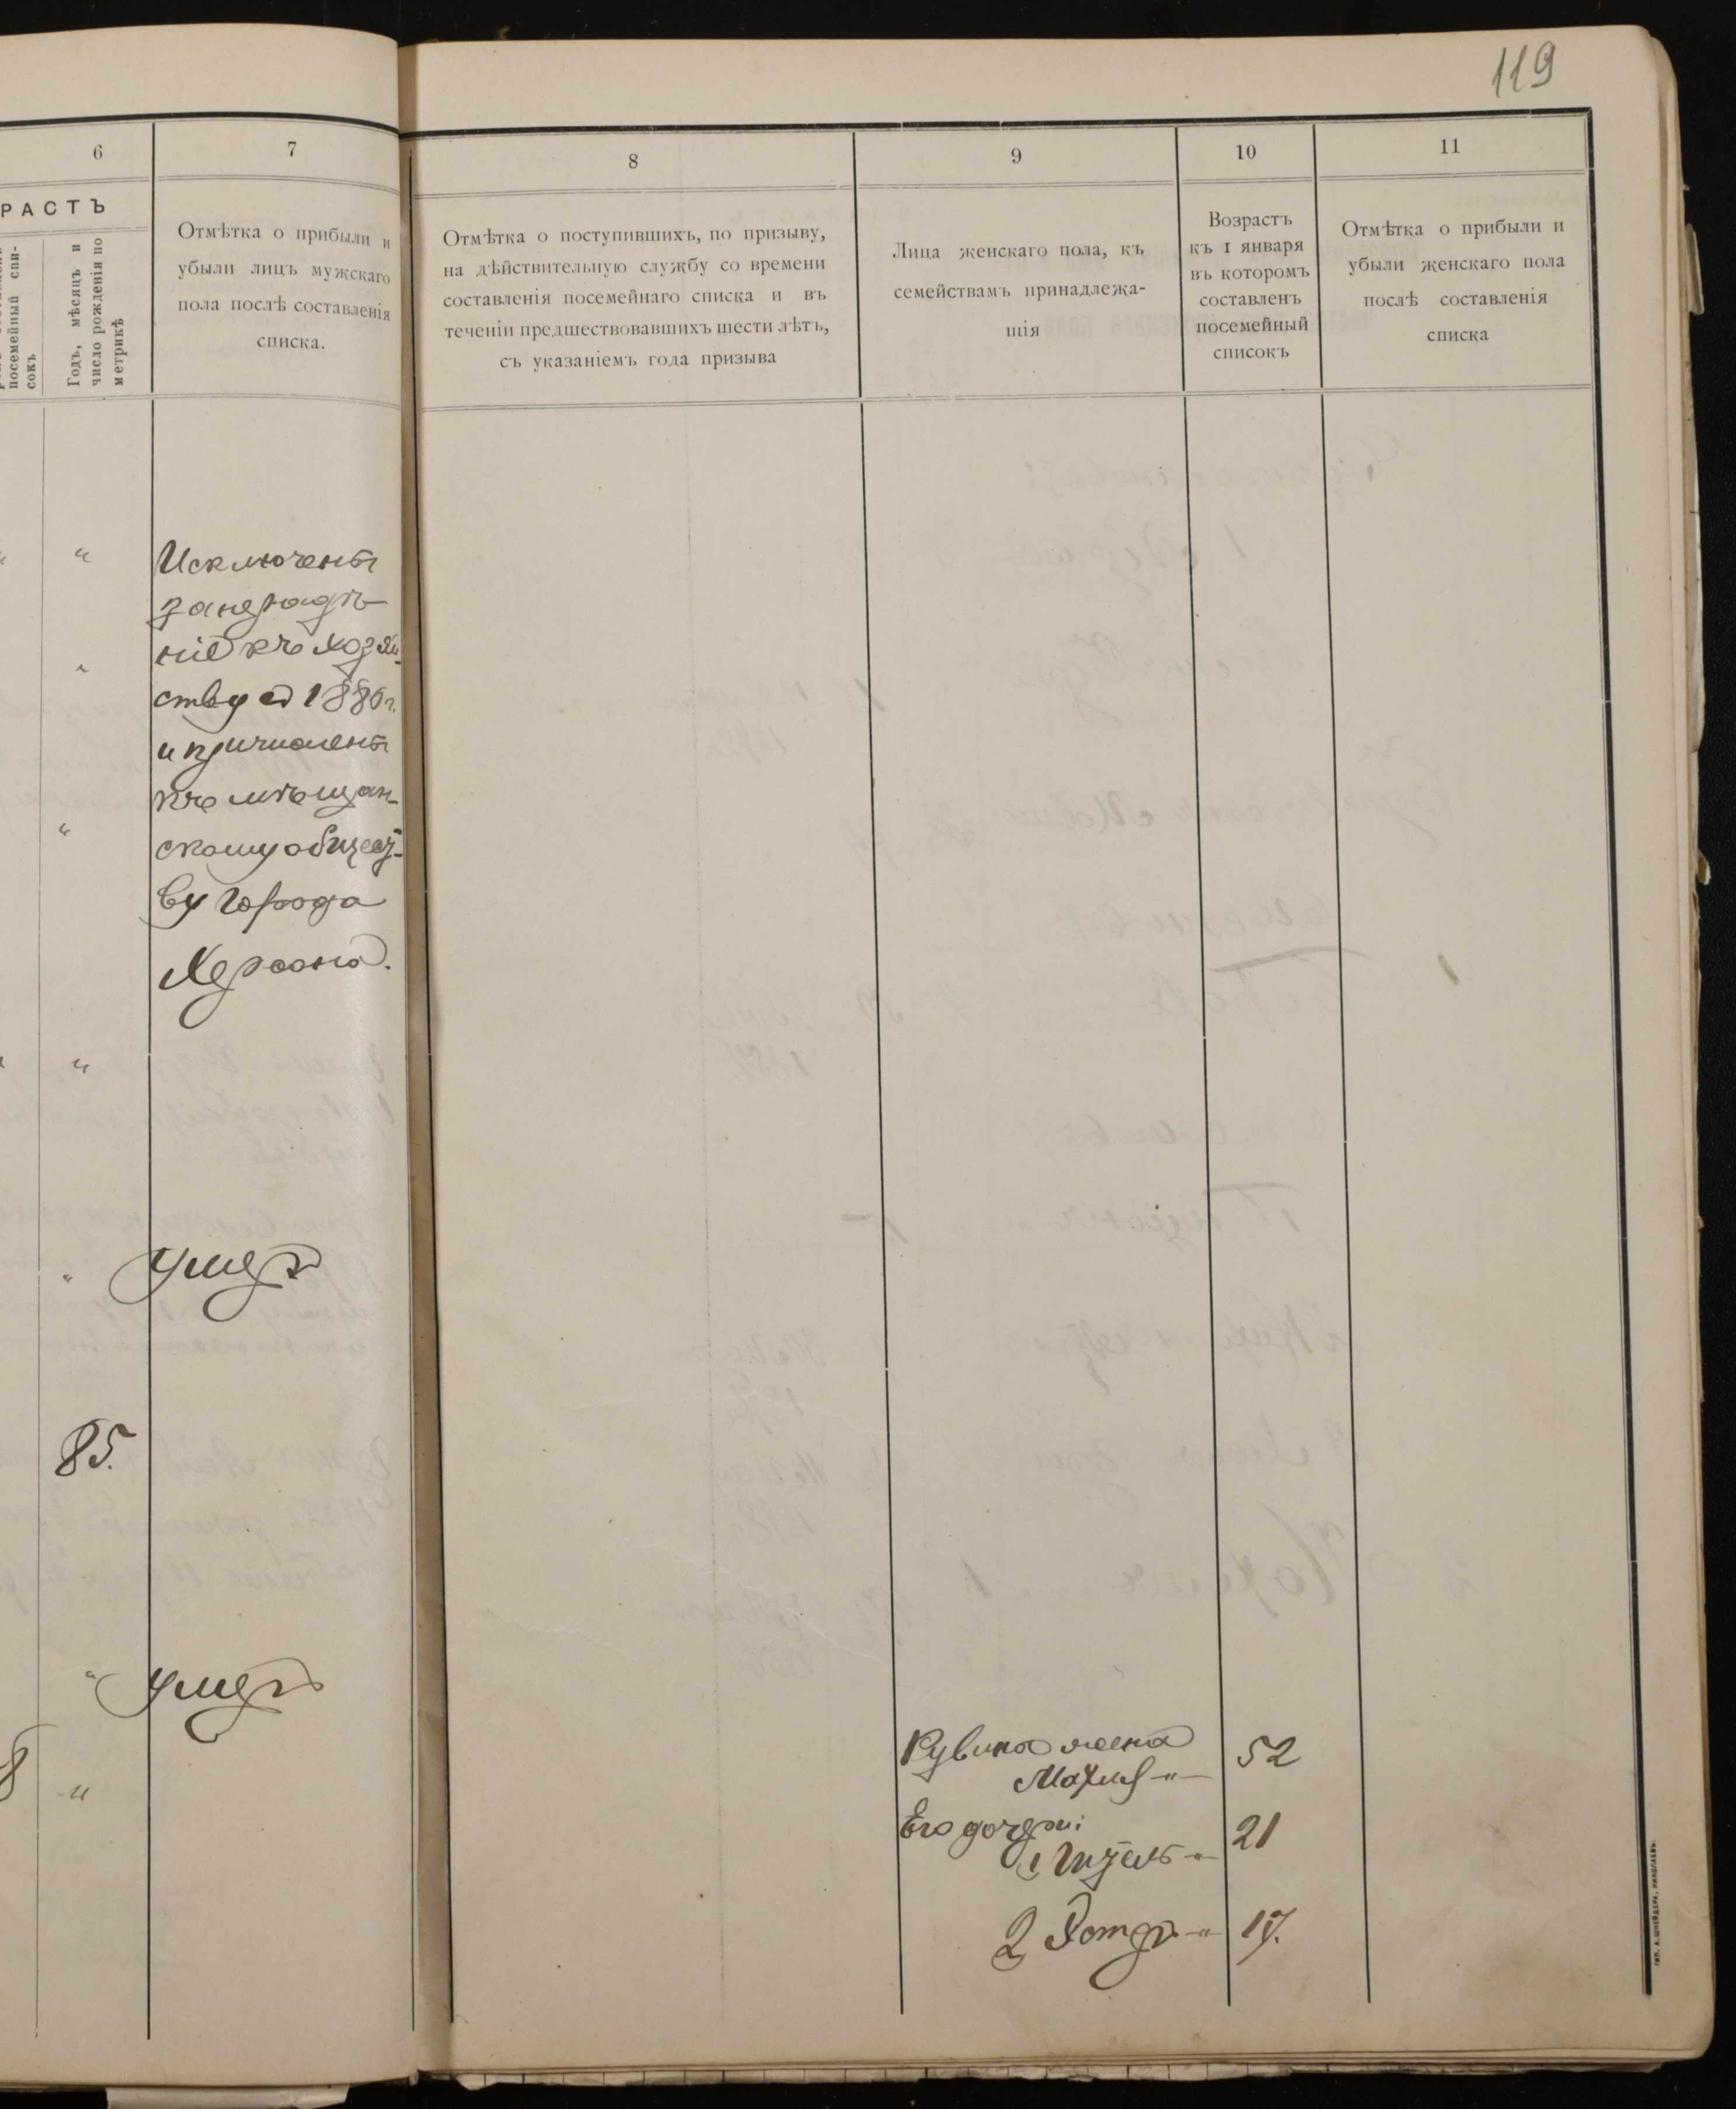 119
6
7
РАСТЪ
посемейный спи-
сокъ
Годъ, мѣсяцъ и
число рожденія по
метрикѣ
Отмѣтка о прибыли и
убыли лицъ мужскаго
пола послѣ составленія
списка.
"
Исключенъ
за нерадѣ-
ніе къ хозяй-
ству съ 1886 г.
и причисленъ
къ мѣщан-
скому общест-
ву города
Херсона.
"
"
умеръ
85.
" умеръ
8 "
8
9
10
11
Отмѣтка о поступившихъ, по призыву,
на дѣйствительную службу со времени
составленія посемейнаго списка и въ
теченіи предшествовавшихъ шести лѣтъ,
съ указаніемъ года призыва
Лица женскаго пола, къ
семействамъ принадлежа-
щія
Возрастъ
къ 1 января
въ которомъ
составленъ
посемейный
списокъ
Отмѣтка о прибыли и
убыли женскаго пола
послѣ составленія
списка
Рувина жена
52
Его дочери:
1
21
2
17.
ТИП. А. ШНЕЙДЕРА, НИКОЛАЕВЪ.